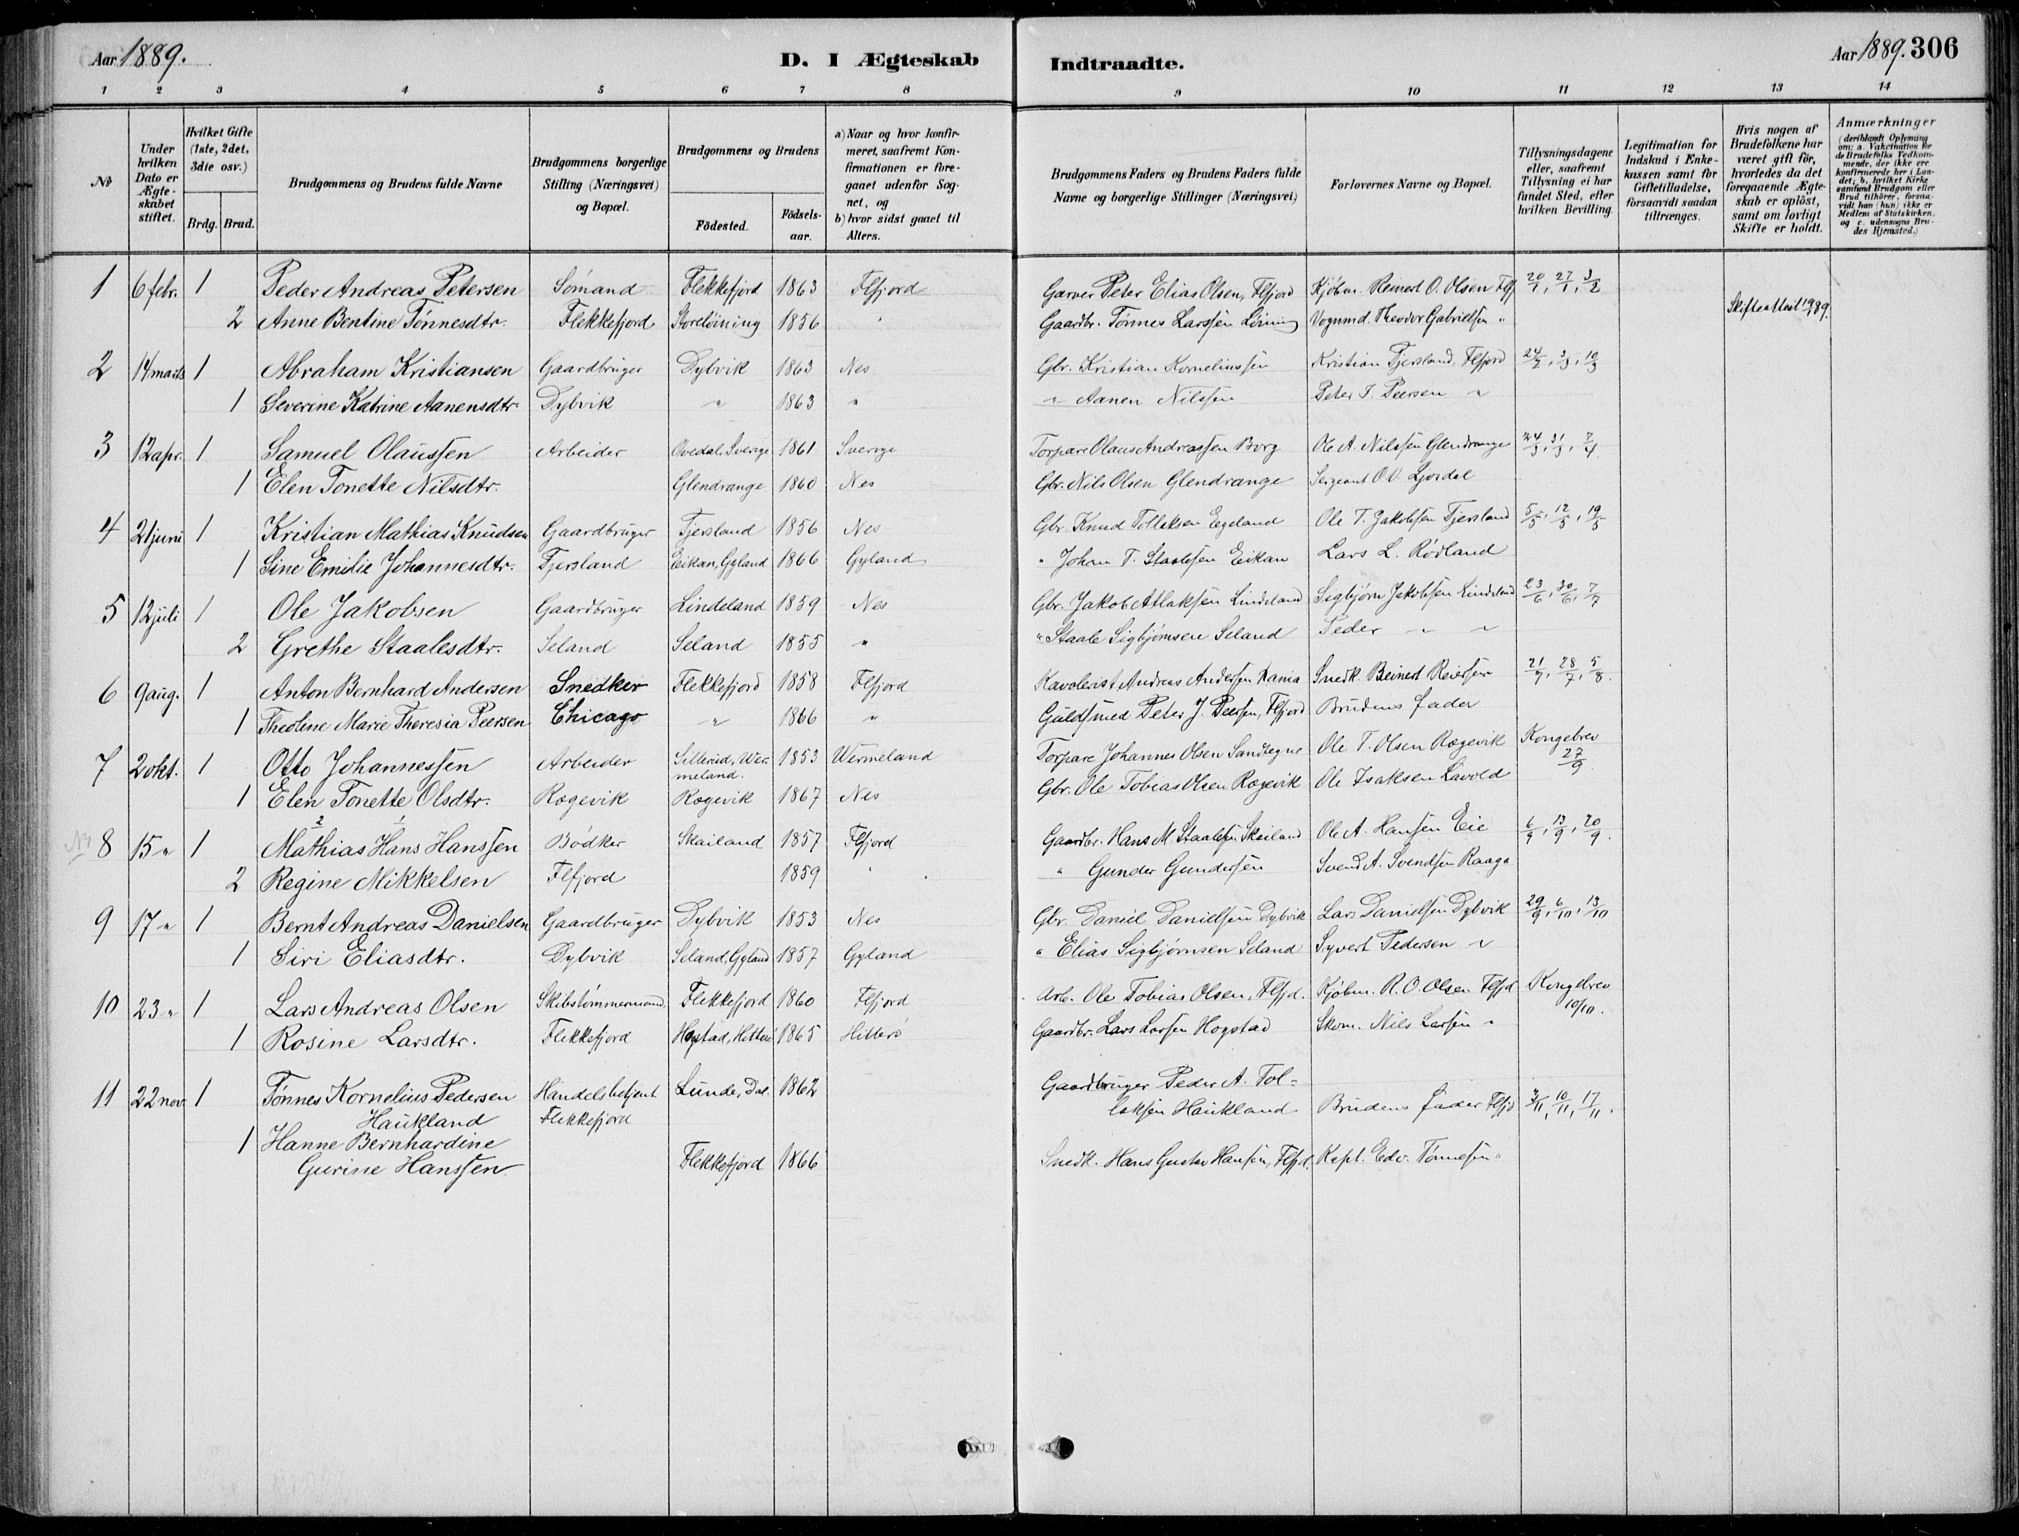 Aar 1889.
D. I Ægteskab
Indtraadte.
Aar 1889. 306
1 2 3 4 5 6 7 8 9 10 11 12 13 14
No
Under hvilken Dato er Ægteskabet stiftet.
Hvilket Gifte (1ste, 2det, 3die osv.)
Brdg. Brud.
Brudgommens og Brudens fulde Navne
Brudgommens borgerlige Stilling (Næringsvei) og Bopæl.
Brudgommens og Brudens
Födested.
Födsels-aar.
a) Naar og hvor konfirmeret, saafremt Konfirmationen er foregaaet udenfor Sognet, og
b) hvor sidst gaaet til Alters.
Brudgommens Faders og Brudens Faders fulde Navne og borgerlige Stillinger (Næringsvei)
Forlovernes Navne og Bopæl.
Tillysningsdagene eller, saafremt Tillysning ei har fundet Sted, efter hvilken Bevilling.
Legitimation for Indskud i Enkekassen samt for Giftetilladelse, forsaavidt saadan tiltrænges.
Hvis nogen af Brudefolkene har været gift för, hvorledes da det foregaaende Ægteskab er oplöst, samt om lovligt Skifte er holdt.
Anmærkninger (deriblandt Oplysning om: a. Vakcination for de Brudefolks Vedkommende, der ikke ere konfirmerede her i Landet; b. hvilket Kirkesamfund Brudgom eller Brud tilhörer, forsaavidt han (hun) ikke er Medlem af Statskirken, og c. udensogns Brudes Hjemsted.)
1 6 febr. 1 Peder Andreas Petersen Sömand Flekkefjord 1863 Flfjord Garver Peter Elias Olsen, Flfjord Kjöbm. Reinert O. Olsen Flfj 20/1, 27/1, 3/2
2 Anne Bentine Tönnesdtr. Flekkefjord Storelöining 1856 " Gaardbr. Tönnes Larssen Löining Vognmd. Theodor Gabrielsen " Skifteattest 1889.
2 14 marts 1 Abraham Kristiansen Gaardbruger Dybvik 1863 Nes Gbr. Kristian Korneliussen Kristian Tjersland, Flfjord 24/2, 3/3, 10/3
1 Severine Katrine Aanensdtr. Dybvik " 1863 " " Aanen Nilssen Peter J. Peersen "
3 12 apr. 1 Samuel Olaussen Arbeider Ovedal, Sverige 1861 Sverige Torpare Olaus Andreassen Borg Ole A. Nilssen Glendrange 24/3, 31/3, 7/4
1 Elen Tonette Nilsdtr. Glendrange 1860 Nes Gbr. Nils Olsen Glendrange Sergeant O. V. Ljosdal
4 21 juni 1 Kristian Mathias Knudsen Gaardbruger Tjersland 1856 Nes Gbr. Knud Tollaksen Egeland Ole T. Jakobsen Tjersland 5/5, 12/5, 19/5
1 Sine Emilie Johannesdtr. Tjersland Eikan, Gyland 1866 Gyland " Johan T. Staalesen Eikan Lars L. Rödland
5 12 juli 1 Ole Jakobsen Gaardbruger Lindeland 1859 Nes Gbr. Jakob Atlaksen Lindeland Sigbjørn Jakobsen Lindeland 23/6, 30/6, 7/7
2 Grethe Staalesdtr. Seland Seland 1855 " " Staale Sigbjørnsen Seland Peder " "
6 9 aug. 1 Anton Bernhard Andersen Snedker Flekkefjord 1858 Flfjord Kavalerist Andreas Andersen Rania Snedk. Beinert Reiersen 21/7, 28/7, 5/8.
1 Theoline Marie Theresia Peersen Chicago " 1866 " Guldsmed Peter J. Peersen, Flfjord Brudens fader
7 2 okt. 1 Otto Johannessen Arbeider Sillerud, Wermeland. 1853 Wermeland Torpare Johannes Olsen Sandtegne Ole T. Olsen Rægevik Kongebrev 27/9.
1 Elen Tonette Olsdtr. Rægevik Rægevik 1867 Nes Gbr. Ole Tobias Olsen Rægevik Ole Isaksen Lavold
8 15 " 1 Mathias Hans Hanssen Bödker Skailand 1857 Flfjord Gaardbr. Hans M. Staalesen Skailand Ole A. Hansen Eie 6/9, 13/9, 20/9.
2 Regine Mikkelsen Flfjord 1859 " " Gunder Gundersen Svend A. Svendsen Raaga
9 17 " 1 Bernt Andreas Danielsen Gaardbruger Dybvik 1853 Nes Gbr. Daniel Danielsen Dybvik Lars Danielsen Dybvik 29/9, 6/10, 13/10
1 Siri Eliasdtr. Dybvik Seland, Gyland 1857 Gyland " Elias Sigbjørnsen Seland Syvert Pedersen "
10 23 " 1 Lars Andreas Olsen Skibstömmermand Flekkefjord 1860 Flfjord Arb. Ole Tobias Olsen, Flfjd. Kjöbm. R. O. Olsen Flfjd Kongebrev 10/10.
1 Rosine Larsdtr. Flekkefjord Hogstad, Hitterö 1865 Hitterö Gaardbr. Lars Larsen Hogstad Skom. Nils Larsen "
11 22 nov. 1 Tönnes Kornelius Pedersen Handelsbetjent Lunde, Dal. 1862 Gaardbruger Peder A. Tol-
Haukland Flekkefjord laksen Haukland Brudens fader Flfjd 3/11, 10/11, 17/11.
1 Hanne Bernhardine
Gurine Hanssen Flekkefjord 1866 Snedk. Hans Gustav Hansen, Flfjd. Kapt. Edv. Tönnesen "